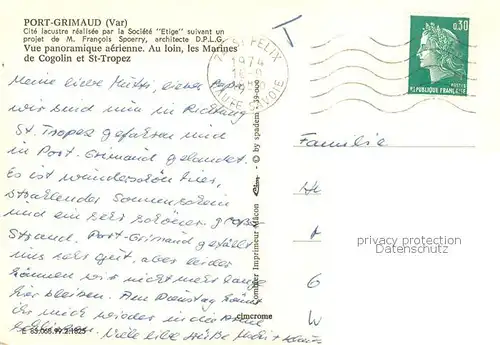 PORT-GRIMAUD (Var)
Cité lacustre réalisée par la Société "Etige" suivant un
projet de M. François Spoerry, architecte D.P.L.G.
Vue panoramique aérienne. Au loin, les Marines
de Cogolin et St-Tropez
Meine liebe Mutti, lieber Papi,
wir sind nun in Richtung
St. Tropez gefahren und
in Port-Grimaud gelandet.
Es ist wunderschön hier,
strahlender Sonnenschein
und ein sehr schöner großer
Strand. Port-Grimaud gefällt
uns sehr gut, aber leider
können wir nicht mehr lange
hier bleiben. Am Dienstag
ihr mich wieder in die Arme
schließen. Viele liebe Grüße
E 83.068.99.2.1825
Combier Imprimeur Mâcon
© by spadem
cimcrome
T
ST FELIX
1974
HAUTE SAVOIE
0,30
REPUBLIQUE FRANÇAISE
POSTES
Familie
privacy protection
Datenschutz
W